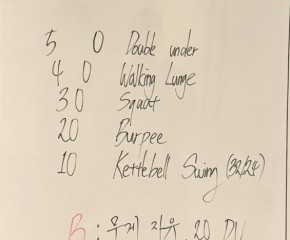 50 Double under
40 Walking Lunge
30 Squat
20 Burpee
10 Kettlebell Swing (32/24)
B : 무게 자유, 20